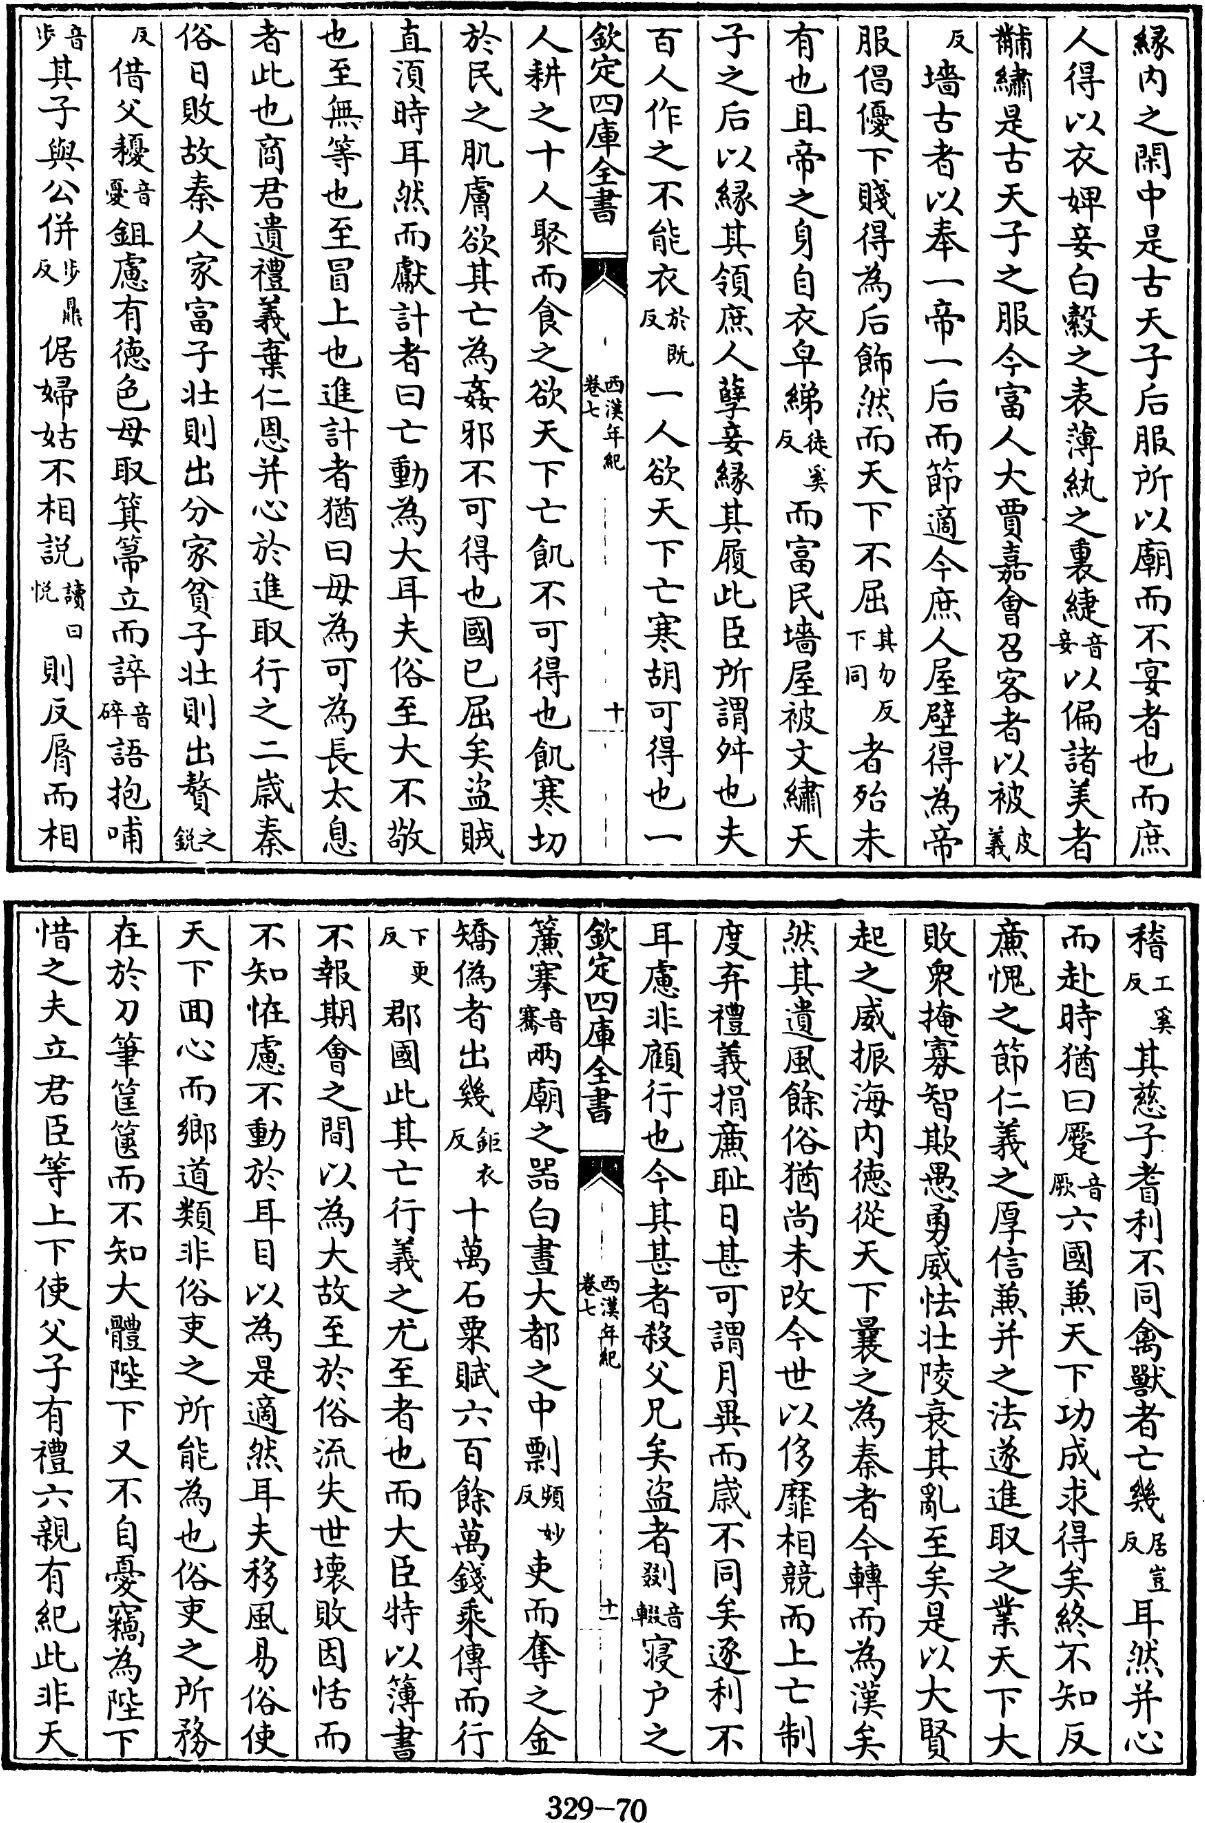 緣内之閑中是古天子后服所以廟而不宴者也而庶
人得以衣婢妾白縠之表薄紈之裏緁音妾以偏諸美者
黼繡是古天子之服今富人大賈嘉會召客者以被皮義
反墻古者以奉一帝一后而節適今庶人屋壁得為帝
服倡優下賤得為后飾然而天下不屈其勿反下同者殆未
有也且帝之身自衣皁綈徒奚反而富民墻屋被文繡天
子之后以緣其領庶人孽妾緣其履此臣所謂舛也夫
百人作之不能衣於既反一人欲天下亡寒胡可得也一
欽定四庫全書 西漢年紀 卷七 十
人耕之十人聚而食之欲天下亡飢不可得也飢寒切
於民之肌膚欲其亡為姦邪不可得也國已屈矣盜賊
直湏時耳然而獻計者曰亡動為大耳夫俗至大不敬
也至無等也至冒上也進計者猶曰毋為可為長太息
者此也商君遺禮義棄仁恩并心於進取行之二歲秦
俗日敗故秦人家富子壯則出分家貧子壯則出贅之銳
反借父耰音憂鉏慮有德色母取箕箒立而誶音碎語抱哺
音步其子與公併步鼎反倨婦姑不相説讀曰悦則反脣而相
稽工奚反其慈子耆利不同禽獸者亡幾居豈反耳然并心
而赴時猶曰蹷音厥六國兼天下功成求得矣終不知反
廉愧之節仁義之厚信兼并之法遂進取之業天下大
敗衆掩寡智欺愚勇威怯壯陵衰其亂至矣是以大賢
起之威振海内德從天下曩之為秦者今轉而為漢矣
然其遺風餘俗猶尚未改今世以侈靡相競而上亡制
度弃禮義捐廉耻日甚可謂月異而歲不同矣逐利不
耳慮非顧行也今其甚者殺父兄矣盜者剟音輟寢户之
欽定四庫全書 西漢年紀 卷七 十一
簾搴音騫兩廟之器白晝大都之中剽頻妙反吏而奪之金
矯偽者出幾鉅衣反十萬石粟賦六百餘萬錢乘傳而行
下更反郡國此其亡行義之尤至者也而大臣特以簿書
不報期會之間以為大故至於俗流失世壞敗因恬而
不知恠慮不動於耳目以為是適然耳夫移風易俗使
天下囬心而鄉道類非俗吏之所能為也俗吏之所務
在於刀筆筐篋而不知大體陛下又不自憂竊為陛下
惜之夫立君臣等上下使父子有禮六親有紀此非天
329-70